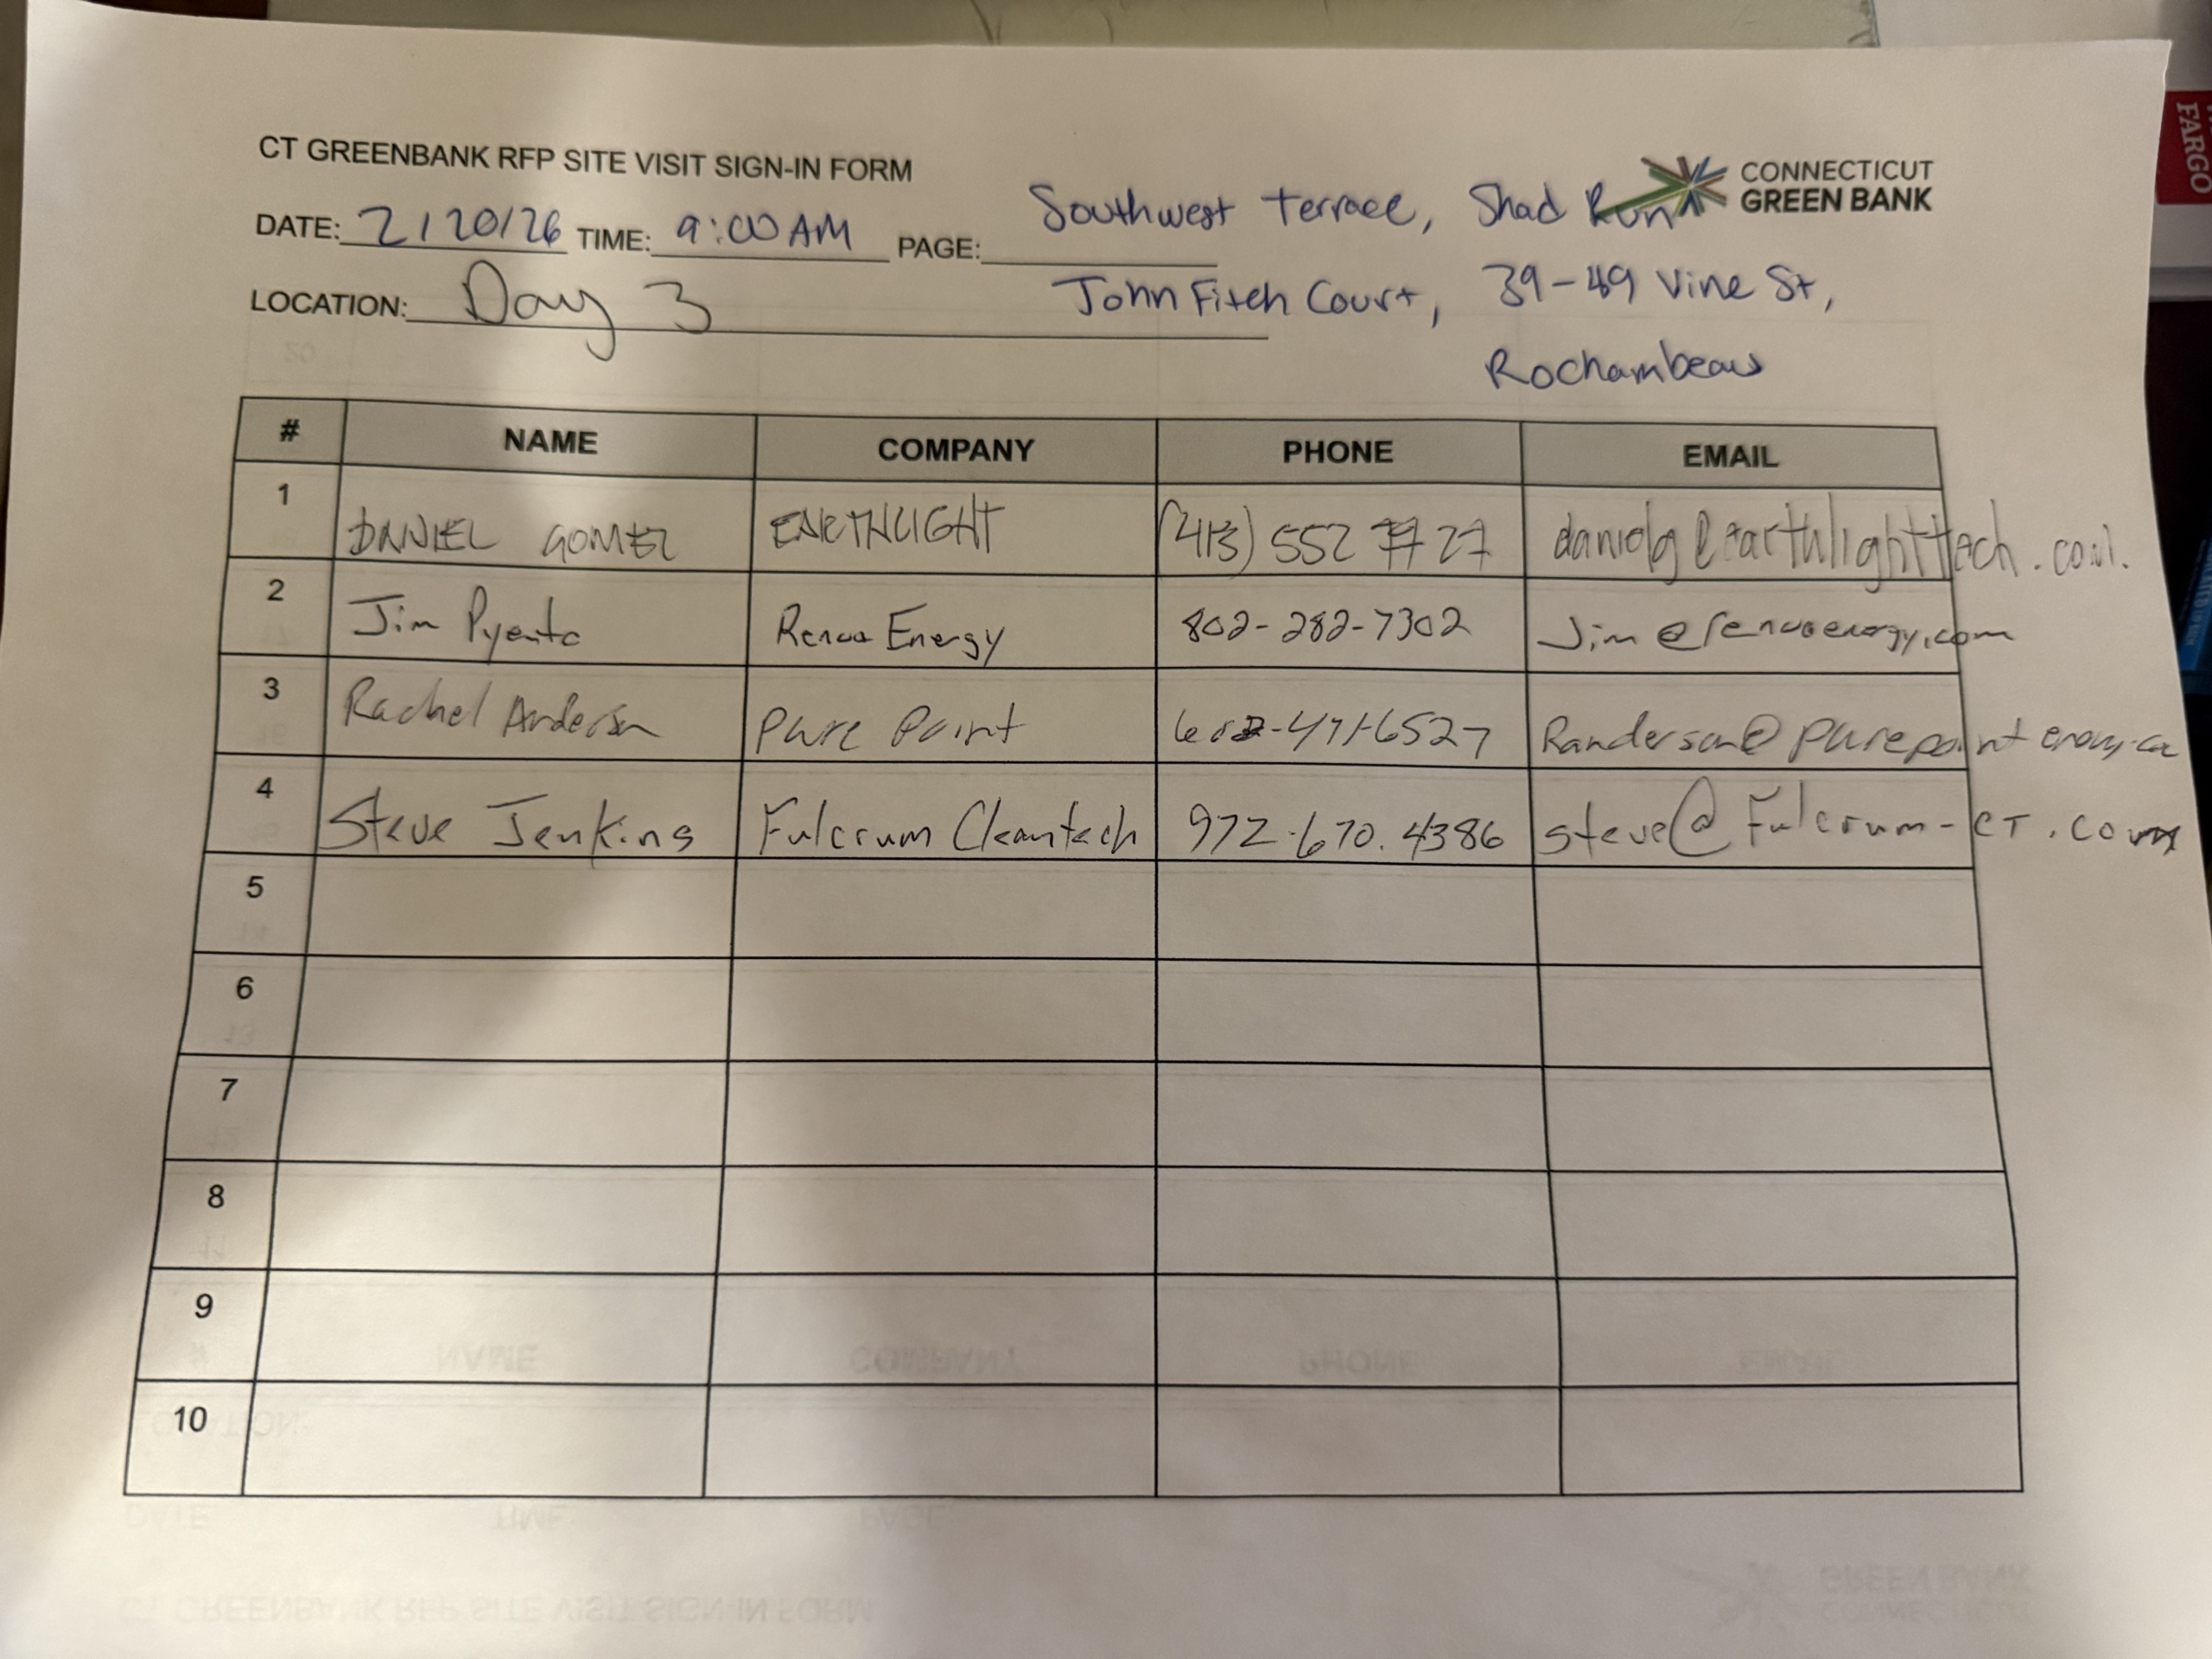 CT GREENBANK RFP SITE VISIT SIGN-IN FORM
CONNECTICUT
GREEN BANK
DATE: 2/20/26 TIME: 9:00 AM PAGE:
Southwest Terrace, Shad Run
LOCATION: Day 3
John Fitch Court, 39-49 Vine St,
Rochambeau
# NAME COMPANY PHONE EMAIL
1 DANIEL GOMEZ EARTHLIGHT (413) 552 7727 danielg@earthlighttech.com.
2 Jim Pyenta Renua Energy 802-282-7302 Jim@renuaenergy.com
3 Rachel Anderson Pure Point Randerson@purepointenergy.co
4 Steve Jenkins Fulcrum Cleantech 972.670.4386 steve@Fulcrum-CT.com
5
6
7
8
9
10
FARGO